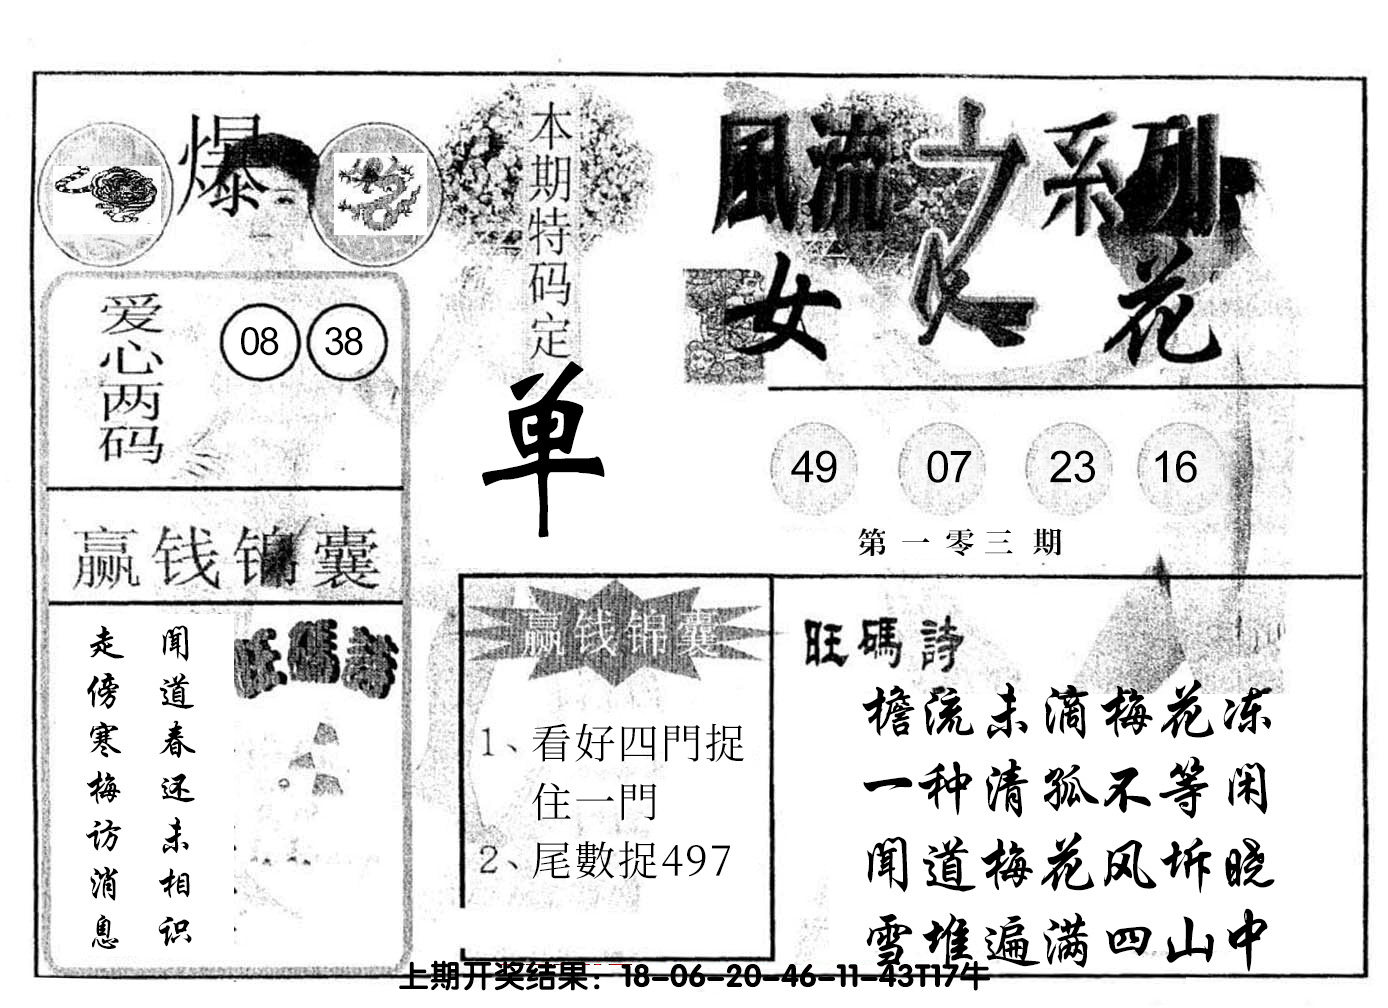 爆
本期特码定
单
風流之系列
女人花
爱心两码
08 38
49 07 23 16
第一零三期
赢钱锦囊
旺碼詩
聞道春还未相识
走傍寒梅访消息
赢钱锦囊
1、看好四門捉
住一門
2、尾數捉497
旺碼詩
檐流未滴梅花冻
一种清孤不等闲
聞道梅花风坼晓
雪堆遍满四山中
上期开奖结果：18-06-20-46-11-43T17牛